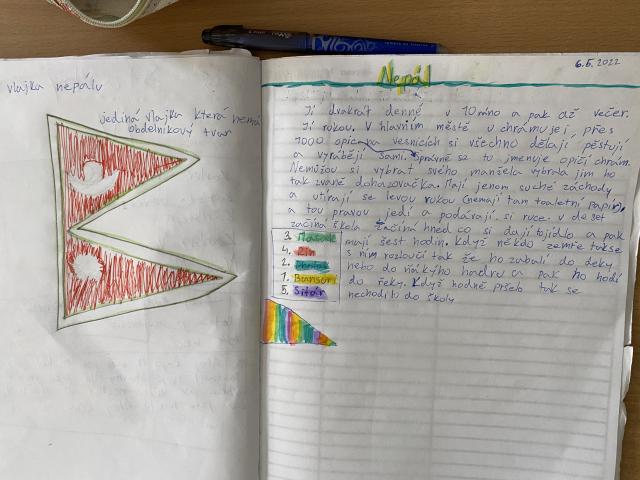 vlajka nepálu
jediná vlajka která nemá
obdelníkový tvar
Nepál
6.5.2022
Jí dvakrát denně v 10 ráno a pak až večer.
Jí rukou. V hlavním městě v chrámu jsi, přes
1000 opic na vesnicích si všechno dělají pěstují
a vyrábějí sami. správně se to jmenuje opičí chrám.
Nemůžou si vybrat svého manžela vybrala jim ho
tak zvaně dohazovačka. Mají jenom suché záchody
a utírají se levou rukou (nemají tam toaletní papír),
a tou pravou jedí a podávají si ruce. v deset
začíná škola začíná hned co si dají jídlo a pak
mají šest hodin. Když někdo zemře takse
s ním rozloučí tak že ho zabalí do deky
nebo do nákýho hadru a pak ho hodí
do řeky. Když hodně pršelo tak se
nechodilo do školy
3. Mádal
4. Zin
2.
1. Bansuri
5. Sitár